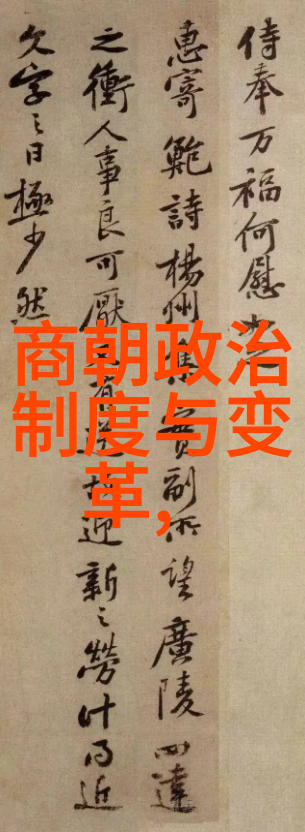 侍奉万福何慰
惠寄鮑詩楊州集實副所望廣陵四達
之衝人事良可厭送故迎新之勞計近
字之日極少然
商朝政治
制度与变
革,